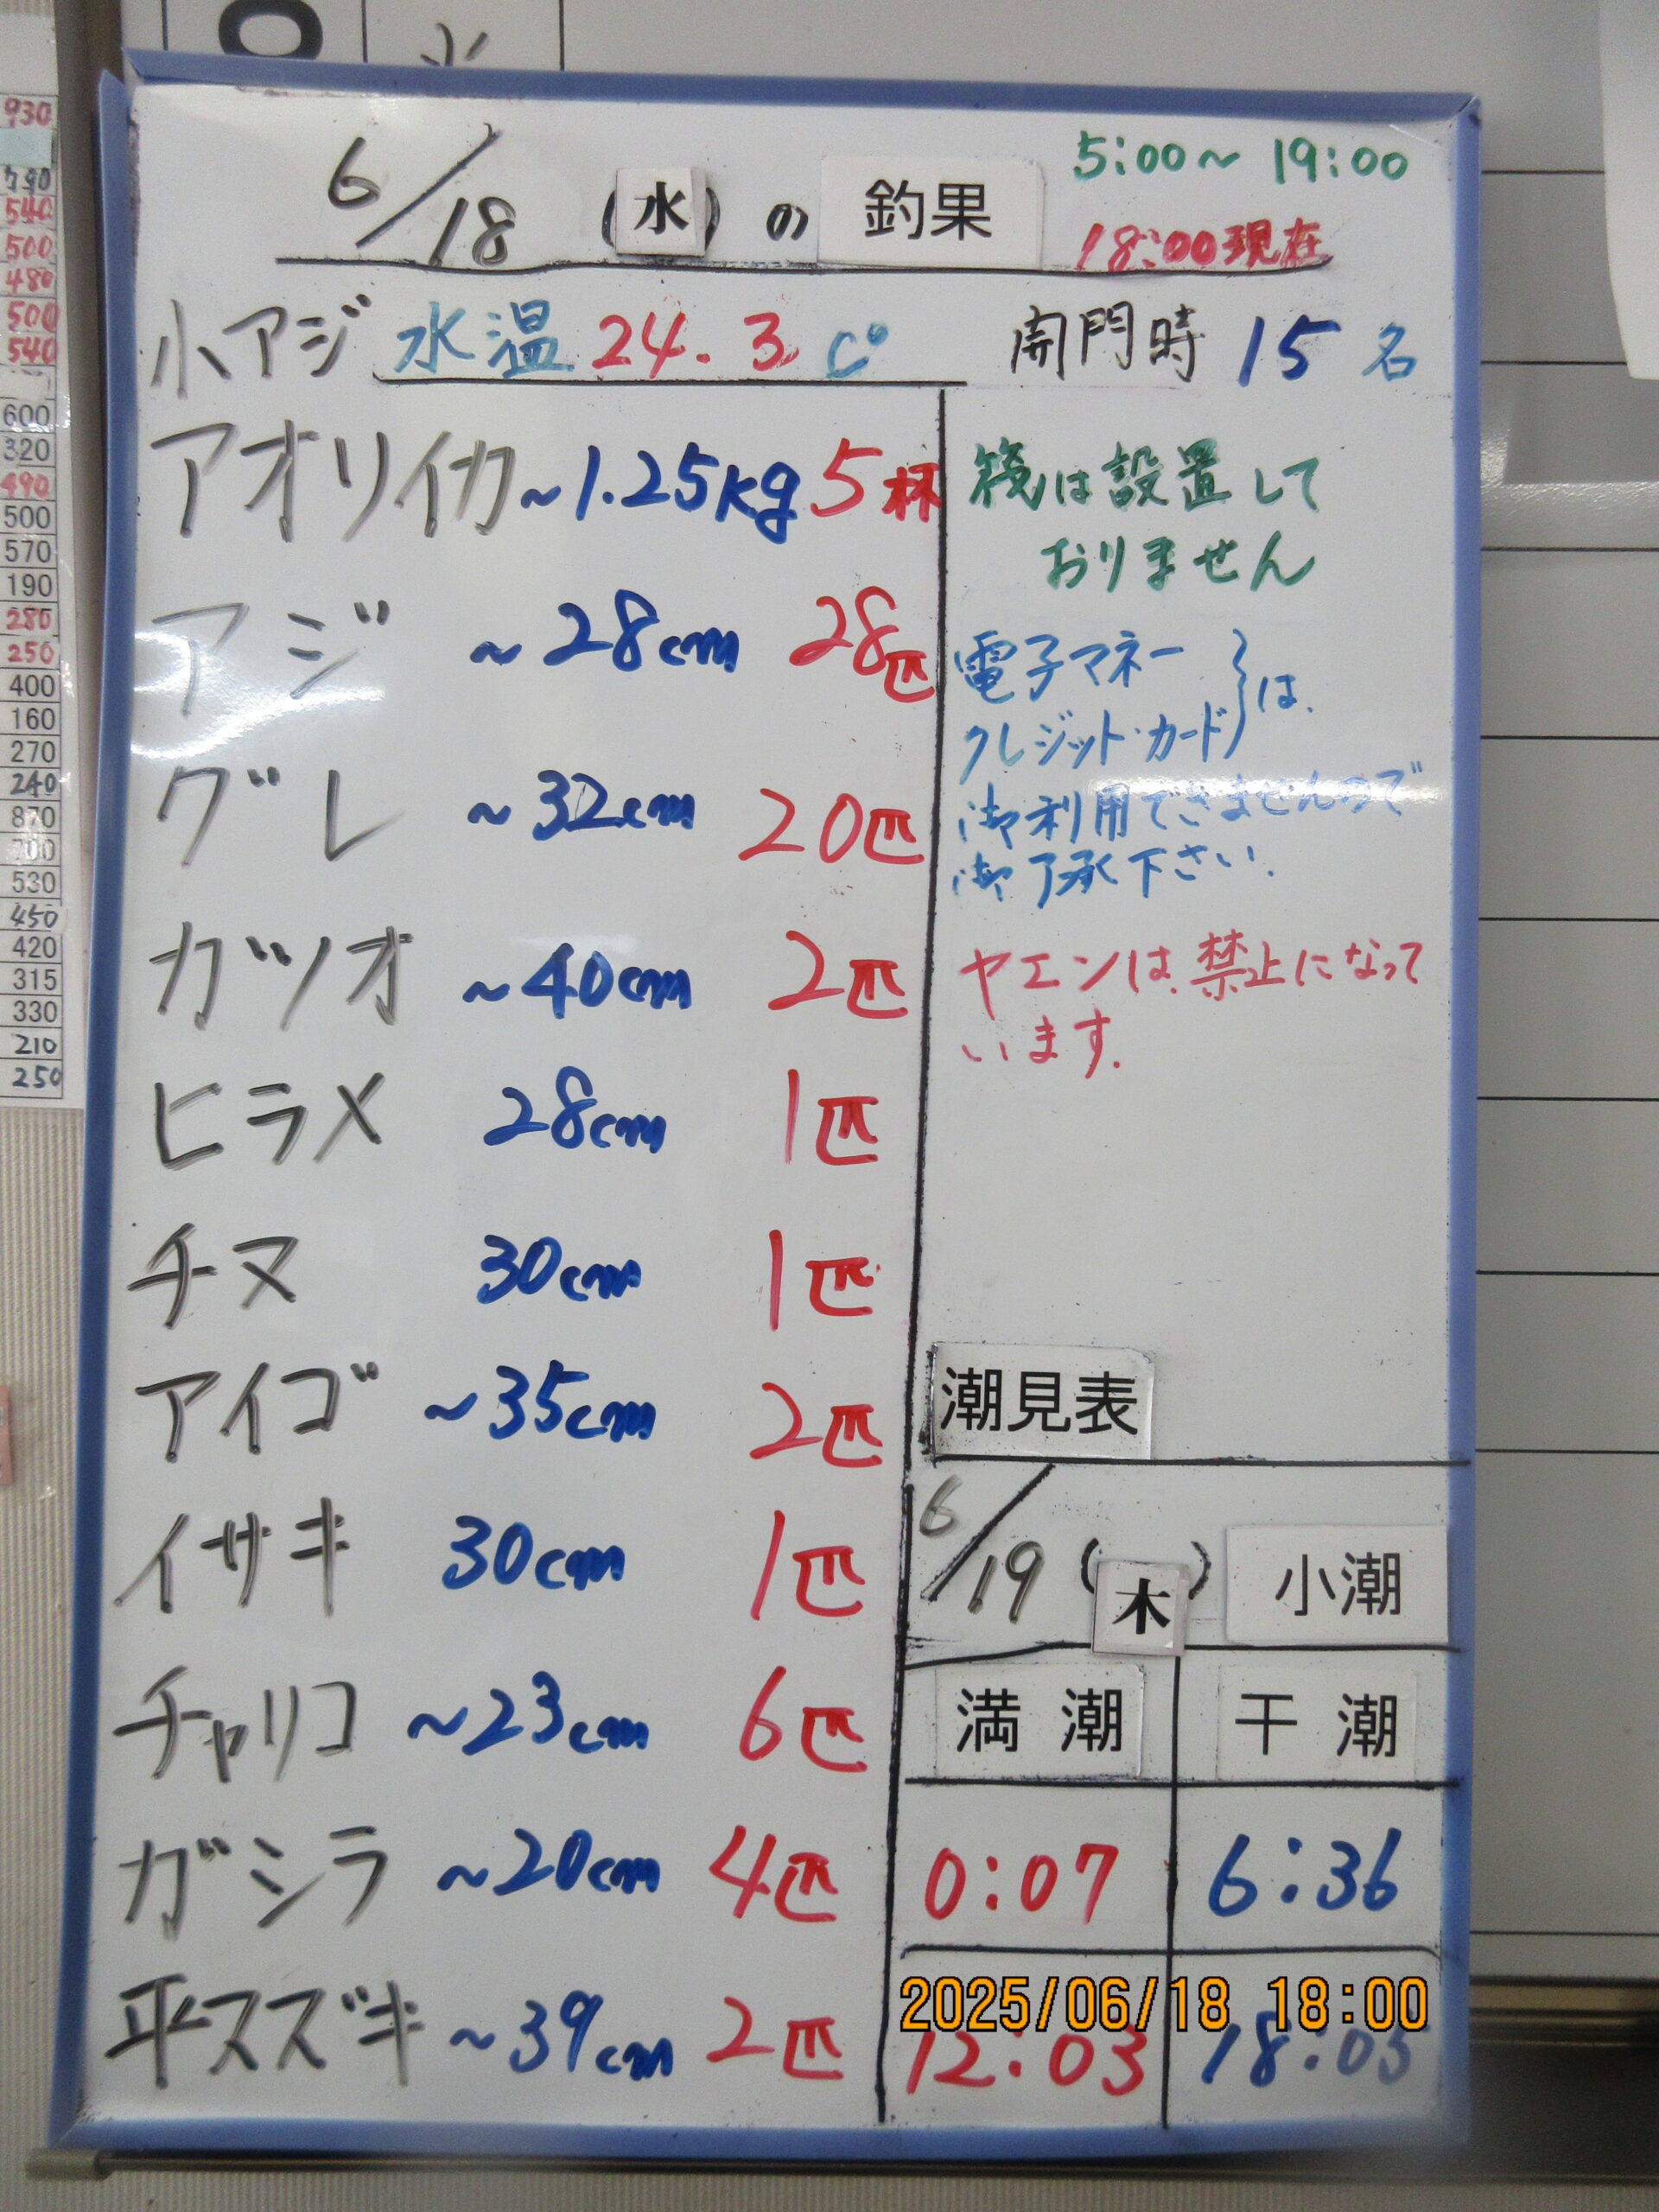 6/18 (水) の 釣果
5:00~19:00
18:00現在
小アジ 水温 24.3 C°
開門時 15 名
アオリイカ ~1.25kg 5杯
アジ ~28cm 28匹
グレ ~32cm 20匹
カツオ ~40cm 2匹
ヒラメ 28cm 1匹
チヌ 30cm 1匹
アイゴ ~35cm 2匹
イサキ 30cm 1匹
チャリコ ~23cm 6匹
ガシラ ~20cm 4匹
平スズキ ~39cm 2匹
筏は設置して
おりません
電子マネー
クレジット・カード}は
御利用できませんので
御了承下さい.
ヤエンは禁止になって
います.
潮見表
6/19 (木) 小潮
満潮 干潮
0:07 6:36
12:03 18:05
2025/06/18 18:00
930
540
500
480
500
540
600
320
490
500
570
190
280
250
400
160
270
240
870
530
450
420
315
330
210
250